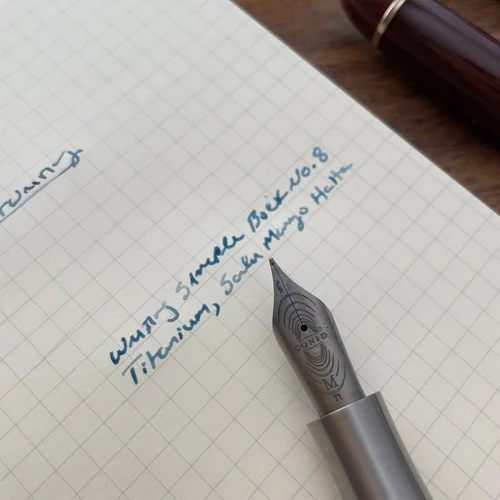 Writing Sample Bock No. 8
Titanium, Sailor Manyo Haha
CONID
M
TI